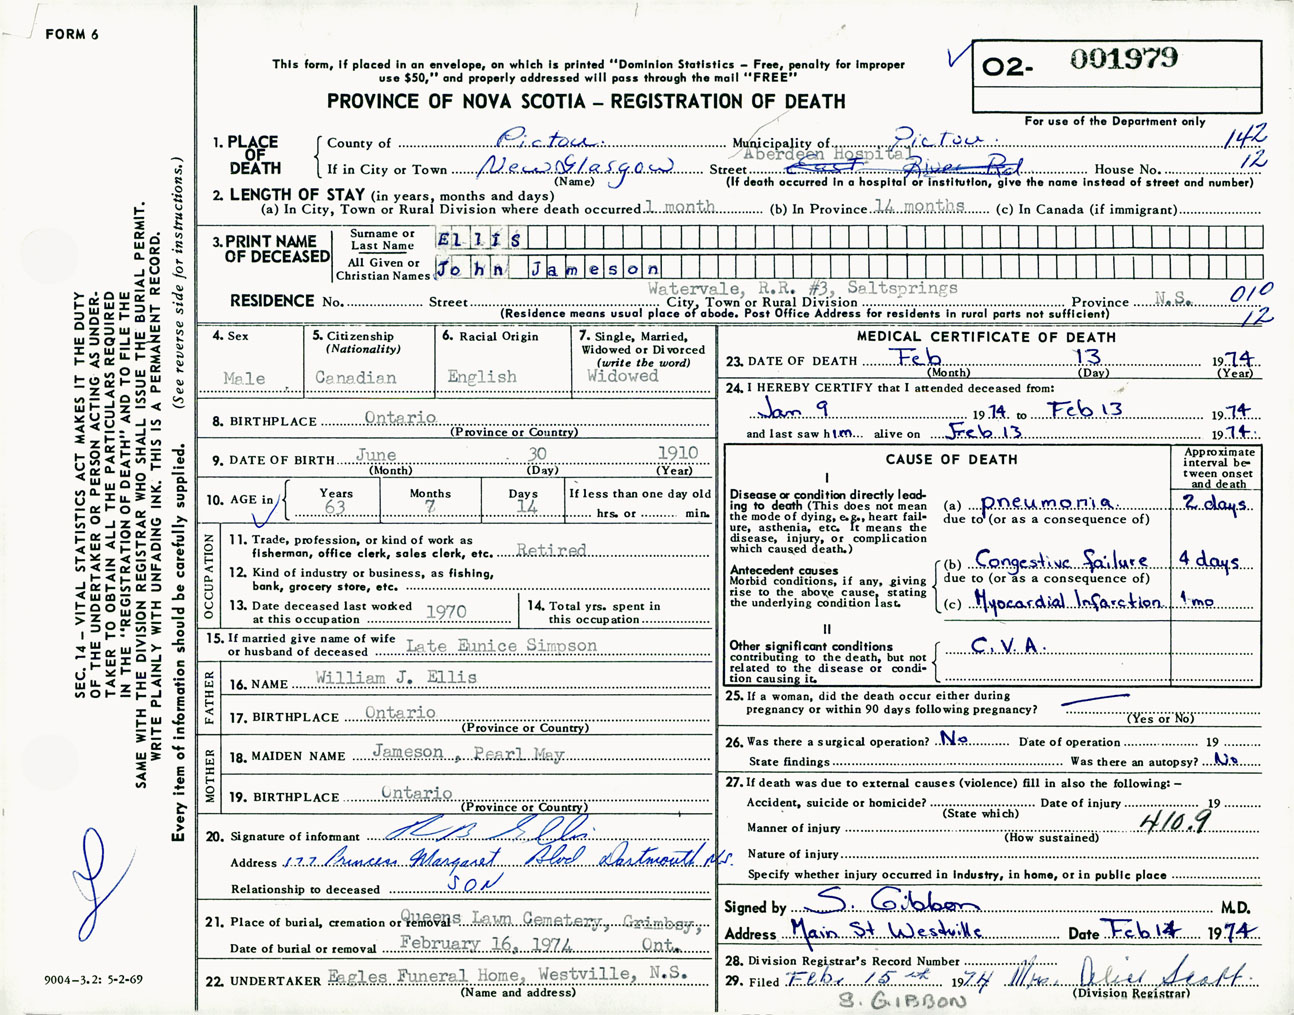 FORM 6
This form, if placed in an envelope, on which is printed "Dominion Statistics – Free, penalty for improper
use $50," and properly addressed will pass through the mail "FREE"
PROVINCE OF NOVA SCOTIA – REGISTRATION OF DEATH
O2- 001979
For use of the Department only
SEC. 14 – VITAL STATISTICS ACT MAKES IT THE DUTY
OF THE UNDERTAKER OR PERSON ACTING AS UNDER-
TAKER TO OBTAIN ALL THE PARTICULARS REQUIRED
IN THE "REGISTRATION OF DEATH" AND TO FILE THE
SAME WITH THE DIVISION REGISTRAR WHO SHALL ISSUE THE BURIAL PERMIT.
WRITE PLAINLY WITH UNFADING INK. THIS IS A PERMANENT RECORD.
Every item of information should be carefully supplied. (See reverse side for instructions.)
1. PLACE OF DEATH
County of Pictou Municipality of Pictou 142
Aberdeen Hospital
If in City or Town New Glasgow Street East River Rd House No. 12
(Name) (If death occurred in a hospital or institution, give the name instead of street and number)
2. LENGTH OF STAY (in years, months and days)
(a) In City, Town or Rural Division where death occurred 1 month (b) In Province 14 months (c) In Canada (if immigrant)
3. PRINT NAME OF DECEASED
Surname or Last Name Ellis
All Given or Christian Names John Jameson
Watervale, R.R. #3, Saltsprings
RESIDENCE No. Street City, Town or Rural Division Province N.S. 010
(Residence means usual place of abode. Post Office Address for residents in rural parts not sufficient) 12
4. Sex
Male
5. Citizenship
(Nationality)
Canadian
6. Racial Origin
English
7. Single, Married,
Widowed or Divorced
(write the word)
Widowed
8. BIRTHPLACE Ontario
(Province or Country)
9. DATE OF BIRTH June 30 1910
(Month) (Day) (Year)
10. AGE in Years Months Days If less than one day old
63 7 14 hrs. or min.
OCCUPATION
11. Trade, profession, or kind of work as
fisherman, office clerk, sales clerk, etc. Retired
12. Kind of industry or business, as fishing,
bank, grocery store, etc.
13. Date deceased last worked
at this occupation 1970
14. Total yrs. spent in
this occupation
15. If married give name of wife
or husband of deceased Late Eunice Simpson
FATHER
16. NAME William J. Ellis
17. BIRTHPLACE Ontario
(Province or Country)
MOTHER
18. MAIDEN NAME Jameson , Pearl May
19. BIRTHPLACE Ontario
(Province or Country)
20. Signature of informant R B Ellis
Address 177 Princess Margaret Blvd Dartmouth N.S.
Relationship to deceased SON
21. Place of burial, cremation or removal Queens Lawn Cemetery, Grimbsy,
Date of burial or removal February 16, 1974 Ont.
22. UNDERTAKER Eagles Funeral Home, Westville, N.S.
(Name and address)
MEDICAL CERTIFICATE OF DEATH
23. DATE OF DEATH Feb 13 1974
(Month) (Day) (Year)
24. I HEREBY CERTIFY that I attended deceased from:
Jan 9 1974 to Feb 13 1974
and last saw him alive on Feb 13 1974
CAUSE OF DEATH
Approximate
interval be-
tween onset
and death
I
Disease or condition directly lead-
ing to death (This does not mean
the mode of dying, e.g., heart fail-
ure, asthenia, etc. It means the
disease, injury, or complication
which caused death.)
(a) pneumonia 2 days
due to (or as a consequence of)
Antecedent causes
Morbid conditions, if any, giving
rise to the above cause, stating
the underlying condition last.
(b) Congestive failure 4 days
due to (or as a consequence of)
(c) Myocardial Infarction 1 mo
II
Other significant conditions
contributing to the death, but not
related to the disease or condi-
tion causing it.
C.V.A.
25. If a woman, did the death occur either during
pregnancy or within 90 days following pregnancy?
(Yes or No)
26. Was there a surgical operation? No Date of operation 19
State findings Was there an autopsy? No
27. If death was due to external causes (violence) fill in also the following: –
Accident, suicide or homicide? Date of injury 19
(State which)
Manner of injury 410.9
(How sustained)
Nature of injury
Specify whether injury occurred in industry, in home, or in public place
Signed by S. Gibbon M.D.
Address Main St Westville Date Feb 14 1974
28. Division Registrar's Record Number
29. Filed Feb. 15th 1974 Mrs. Alice Scott
(Division Registrar)
S. GIBBON
9004–3.2: 5-2-69